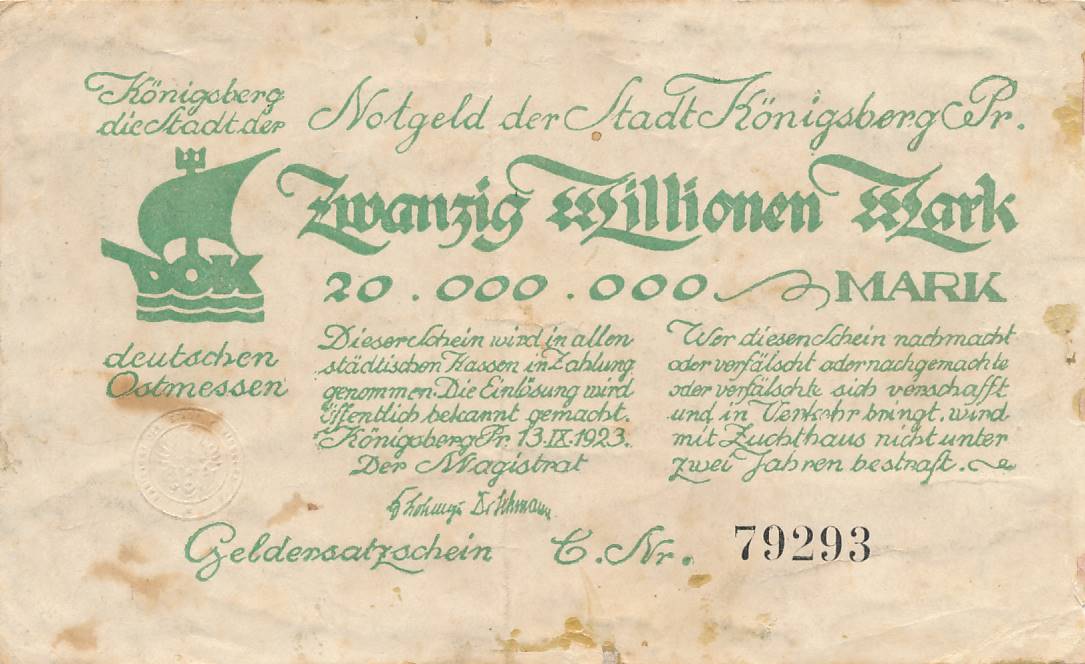 Königsberg
die Stadt der
DOK
deutschen
Ostmessen
Notgeld der Stadt Königsberg Pr.
Zwanzig Millionen Mark
20.000.000 MARK
Dieser Schein wird in allen
städtischen Kassen in Zahlung
genommen. Die Einlösung wird
öffentlich bekannt gemacht.
Königsberg Pr. 13.IX.1923.
Der Magistrat
Wer diesen Schein nachmacht
oder verfälscht oder nachgemachte
oder verfälschte sich verschafft
und in Verkehr bringt, wird
mit Zuchthaus nicht unter
zwei Jahren bestraft.
Geldersatzschein C. Nr. 79293